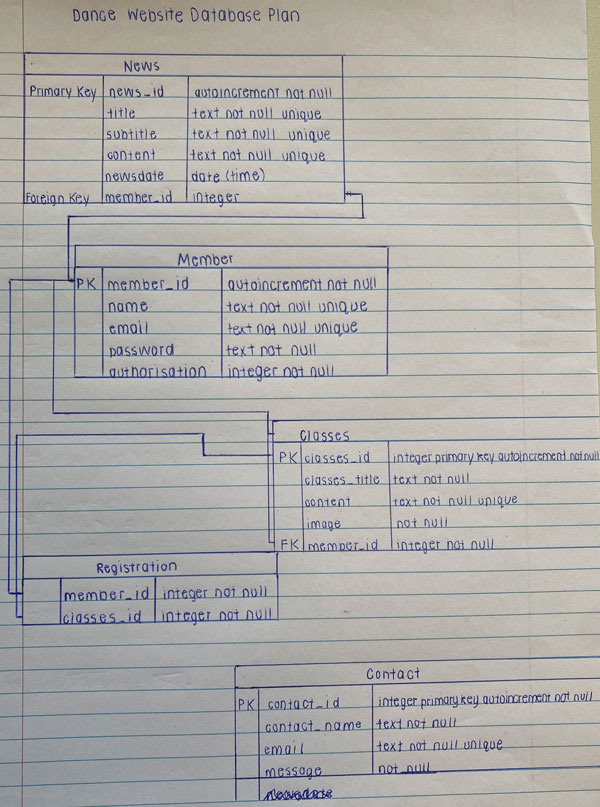 Dance Website Database Plan
News
Primary Key news_id autoincrement not null
title text not null unique
subtitle text not null unique
content text not null unique
newsdate date (time)
Foreign Key member_id integer
Member
PK member_id autoincrement not null
name text not null unique
email text not null unique
password text not null
authorisation integer not null
Classes
PK classes_id integer primary key autoincrement not null
classes_title text not null
content text not null unique
image not null
FK member_id integer not null
Registration
member_id integer not null
classes_id integer not null
Contact
PK contact_id integer primary key autoincrement not null
contact_name text not null
email text not null unique
message not null